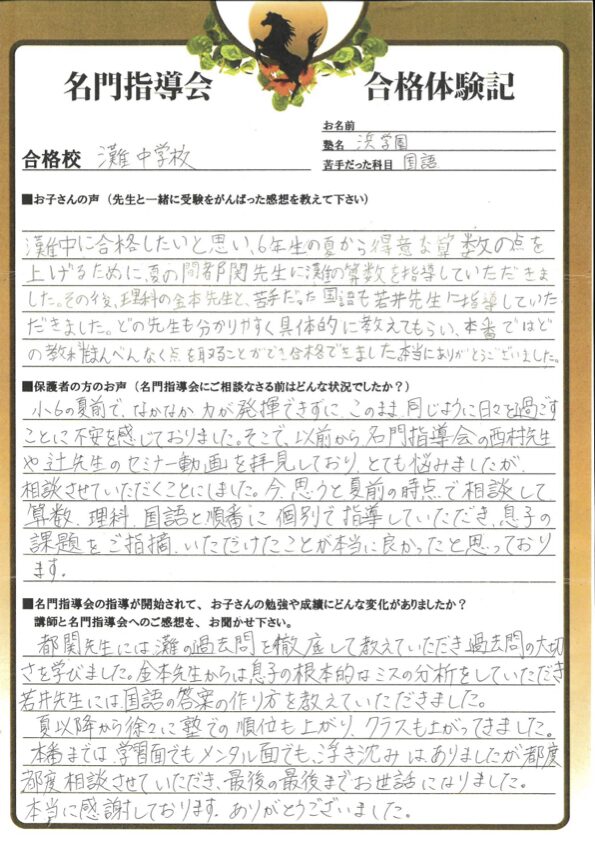 名門指導会
合格体験記
お名前
塾名 浜学園
合格校 灘中学校
苦手だった科目 国語
■お子さんの声（先生と一緒に受験をがんばった感想を教えて下さい）
灘中に合格したいと思い、6年生の夏から得意な算数の点を
上げるために夏の間都関先生に灘の算数を指導していただきま
した。その後、理科の金本先生と、苦手だった国語も若井先生に指導していた
だきました。どの先生も分かりやすく具体的に教えてもらい、本番ではど
の教科もまんべんなく点を取ることができ合格できました。本当にありがとうございました。
■保護者の方のお声（名門指導会にご相談なさる前はどんな状況でしたか？）
小6の夏前で、なかなか力が発揮できずに、このまま同じように日々を過ごす
ことに不安を感じておりました。そこで、以前から名門指導会の西村先生
や辻先生のセミナー動画を拝見しており、とても悩みましたが、
相談させていただくことにしました。今、思うと夏前の時点で相談して
算数、理科、国語と順番に個別で指導していただき、息子の
課題をご指摘いただけたことが本当に良かったと思っており
ます。
■名門指導会の指導が開始されて、お子さんの勉強や成績にどんな変化がありましたか？
講師と名門指導会へのご感想を、お聞かせ下さい。
都関先生には灘の過去問を徹底して教えていただき、過去問の大切
さを学びました。金本先生からは息子の根本的なミスの分析をしていただき
若井先生には国語の答案の作り方を教えていただきました。
夏以降から徐々に塾での順位も上がり、クラスも上がってきました。
本番までは、学習面でもメンタル面でも、浮き沈みはありましたが都度
都度相談させていただき、最後の最後までお世話になりました。
本当に感謝しております。ありがとうございました。